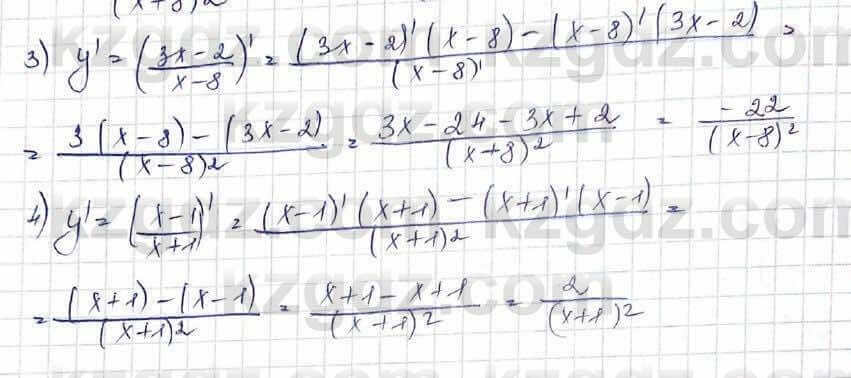 (x+8)2
3) y' = ((3x-2)/(x-8))' = ((3x-2)'(x-8) - (x-8)'(3x-2))/(x-8)' =
= (3(x-8) - (3x-2))/(x-8)2 = (3x-24-3x+2)/(x+8)^2 = -22/(x-8)^2
4) y' = ((x-1)/(x+1))' = ((x-1)'(x+1) - (x+1)'(x-1))/(x+1)2 =
= ((x+1)-(x-1))/(x+1)2 = (x+1-x+1)/(x+1)^2 = 2/(x+1)^2
kzgdz.com